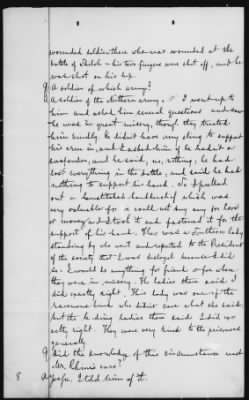 wounded soldier there who was wounded at the
battle of Shiloh - his two fingers were shot off, and he
was shot on his hip.
Q A soldier of which army?
A A soldier of the Northern army. I went up to
him and asked him several questions and saw
he was in great misery, though they treated
him kindly. He didn't have any sling to support
his arm in, and I asked him if he hadn't a
suspender, and he said, no, nothing; he had
lost everything in the battle, and said he had
nothing to support his hand. So I pulled
out a handkerchief which was
very valuable for I could not buy any for love
or money and I took it and fastened it for the
support of his hand. There was a Southern lady
standing by who went and reported to the President
of the society that I was disloyal because I did
so. I would do anything for friends or foe when
they were in misery. The ladies there said I
did exactly right. This lady was one of the
ravenous kind who didn't care what she said;
but the leading ladies there said I did ex-
actly right. They were very kind to the prisoners
generally.
Q Did the knowledge of this circumstance reach
Mr. case?
A Yes, I told him of it.
8